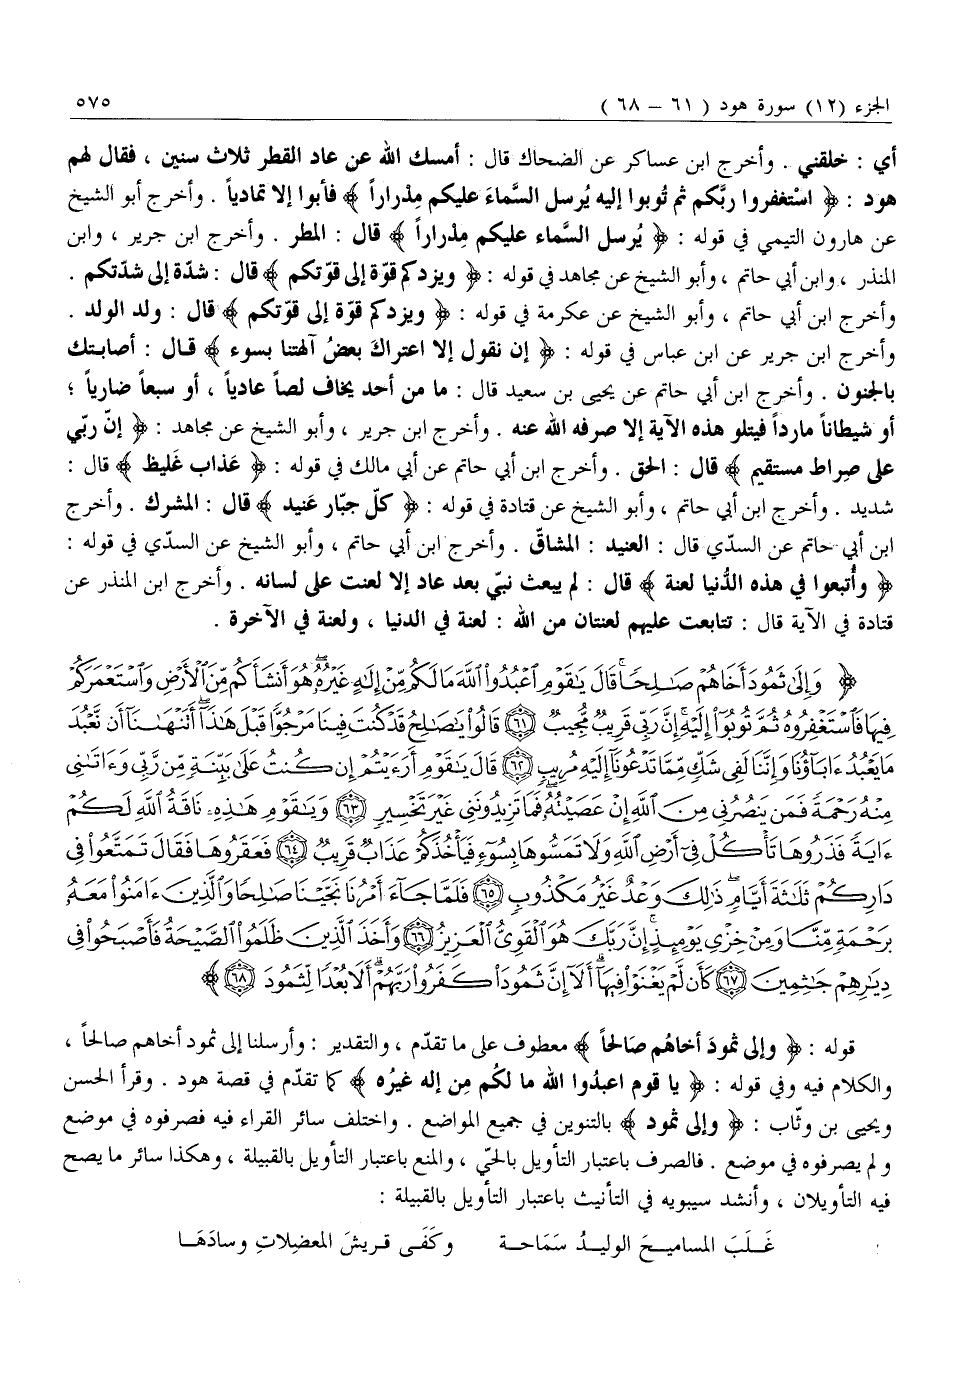 الجزء (١٢) سورة هود ( ٦١ – ٦٨ ) ٥٧٥
أي : خلقني . وأخرج ابن عساكر عن الضحاك قال : أمسك الله عن عاد القطر ثلاث سنين ، فقال لهم
هود : ﴿ اسْتغفروا ربَّكم ثم تُوبوا إليه يُرسل السَّماءَ عليكم مِدْراراً ﴾ فأبوا إلا تمادياً . وأخرج أبو الشيخ
عن هارون التيمي في قوله : ﴿ يُرسل السَّماء عليكم مِدْراراً ﴾ قال : المطر . وأخرج ابن جرير ، وابن
المنذر ، وابن أبي حاتم ، وأبو الشيخ عن مجاهد في قوله : ﴿ ويزدكم قوّة إلى قوّتكم ﴾ قال : شدّة إلى شدّتكم .
وأخرج ابن أبي حاتم ، وأبو الشيخ عن عكرمة في قوله : ﴿ ويزدكم قوّة إلى قوّتكم ﴾ قال : ولد الولد .
وأخرج ابن جرير عن ابن عباس في قوله : ﴿ إن نقول إلا اعتراكَ بعضُ آلهتنا بسوء ﴾ قال : أصابتك
بالجنون . وأخرج ابن أبي حاتم عن يحيى بن سعيد قال : ما من أحد يخاف لصاً عادياً ، أو سبعاً ضارياً ؛
أو شيطاناً مارداً فيتلو هذه الآية إلا صرفه الله عنه . وأخرج ابن جرير ، وأبو الشيخ عن مجاهد : ﴿ إنّ ربّي
على صِراط مستقيم ﴾ قال : الحق . وأخرج ابن أبي حاتم عن أبي مالك في قوله : ﴿ عَذاب غَليظ ﴾ قال :
شديد . وأخرج ابن أبي حاتم ، وأبو الشيخ عن قتادة في قوله : ﴿ كلّ جبّار عَنيد ﴾ قال : المشرك . وأخرج
ابن أبي حاتم عن السدّي قال : العنيد : المشاقّ . وأخرج ابن أبي حاتم ، وأبو الشيخ عن السدّي في قوله :
﴿ وأُتبعوا في هذه الدُّنيا لعنة ﴾ قال : لم يبعث نبيّ بعد عاد إلا لعنت على لسانه . وأخرج ابن المنذر عن
قتادة في الآية قال : تتابعت عليهم لعنتان من الله : لعنة في الدنيا ، ولعنة في الآخرة .
﴿ وَإِلَىٰ ثَمُودَ أَخَاهُمْ صَٰلِحًا ۚ قَالَ يَٰقَوْمِ ٱعْبُدُوا۟ ٱللَّهَ مَا لَكُم مِّنْ إِلَٰهٍ غَيْرُهُۥ ۖ هُوَ أَنشَأَكُم مِّنَ ٱلْأَرْضِ وَٱسْتَعْمَرَكُمْ
فِيهَا فَٱسْتَغْفِرُوهُ ثُمَّ تُوبُوٓا۟ إِلَيْهِ ۚ إِنَّ رَبِّى قَرِيبٌ مُّجِيبٌ ۝٦١ قَالُوا۟ يَٰصَٰلِحُ قَدْ كُنتَ فِينَا مَرْجُوًّا قَبْلَ هَٰذَآ ۖ أَتَنْهَىٰنَآ أَن نَّعْبُدَ
مَا يَعْبُدُ ءَابَآؤُنَا وَإِنَّنَا لَفِى شَكٍّ مِّمَّا تَدْعُونَآ إِلَيْهِ مُرِيبٍ ۝٦٢ قَالَ يَٰقَوْمِ أَرَءَيْتُمْ إِن كُنتُ عَلَىٰ بَيِّنَةٍ مِّن رَّبِّى وَءَاتَىٰنِى
مِنْهُ رَحْمَةً فَمَن يَنصُرُنِى مِنَ ٱللَّهِ إِنْ عَصَيْتُهُۥ ۖ فَمَا تَزِيدُونَنِى غَيْرَ تَخْسِيرٍ ۝٦٣ وَيَٰقَوْمِ هَٰذِهِۦ نَاقَةُ ٱللَّهِ لَكُمْ
ءَايَةً فَذَرُوهَا تَأْكُلْ فِىٓ أَرْضِ ٱللَّهِ وَلَا تَمَسُّوهَا بِسُوٓءٍ فَيَأْخُذَكُمْ عَذَابٌ قَرِيبٌ ۝٦٤ فَعَقَرُوهَا فَقَالَ تَمَتَّعُوا۟ فِى
دَارِكُمْ ثَلَٰثَةَ أَيَّامٍ ۖ ذَٰلِكَ وَعْدٌ غَيْرُ مَكْذُوبٍ ۝٦٥ فَلَمَّا جَآءَ أَمْرُنَا نَجَّيْنَا صَٰلِحًا وَٱلَّذِينَ ءَامَنُوا۟ مَعَهُۥ
بِرَحْمَةٍ مِّنَّا وَمِنْ خِزْىِ يَوْمِئِذٍ ۗ إِنَّ رَبَّكَ هُوَ ٱلْقَوِىُّ ٱلْعَزِيزُ ۝٦٦ وَأَخَذَ ٱلَّذِينَ ظَلَمُوا۟ ٱلصَّيْحَةُ فَأَصْبَحُوا۟ فِى
دِيَٰرِهِمْ جَٰثِمِينَ ۝٦٧ كَأَن لَّمْ يَغْنَوْا۟ فِيهَآ ۗ أَلَآ إِنَّ ثَمُودَا۟ كَفَرُوا۟ رَبَّهُمْ ۗ أَلَا بُعْدًا لِّثَمُودَ ۝٦٨ ﴾
قوله : ﴿ وإلى ثمودَ أخاهُم صَالحاً ﴾ معطوف على ما تقدّم ، والتقدير : وأرسلنا إلى ثمود أخاهم صالحاً ،
والكلام فيه وفي قوله : ﴿ يا قوم اعبدُوا الله ما لكُم مِن إله غيرُه ﴾ كما تقدّم في قصة هود . وقرأ الحسن
ويحيى بن وثّاب : ﴿ وإلى ثمود ﴾ بالتنوين في جميع المواضع . واختلف سائر القراء فيه فصرفوه في موضع
ولم يصرفوه في موضع . فالصرف باعتبار التأويل بالحيّ ، والمنع باعتبار التأويل بالقبيلة ، وهكذا سائر ما يصح
فيه التأويلان ، وأنشد سيبويه في التأنيث باعتبار التأويل بالقبيلة :
غَلَبَ المساميحَ الوليدُ سَمَاحة وكَفَى قريشَ المعضِلاتِ وسادَهَا